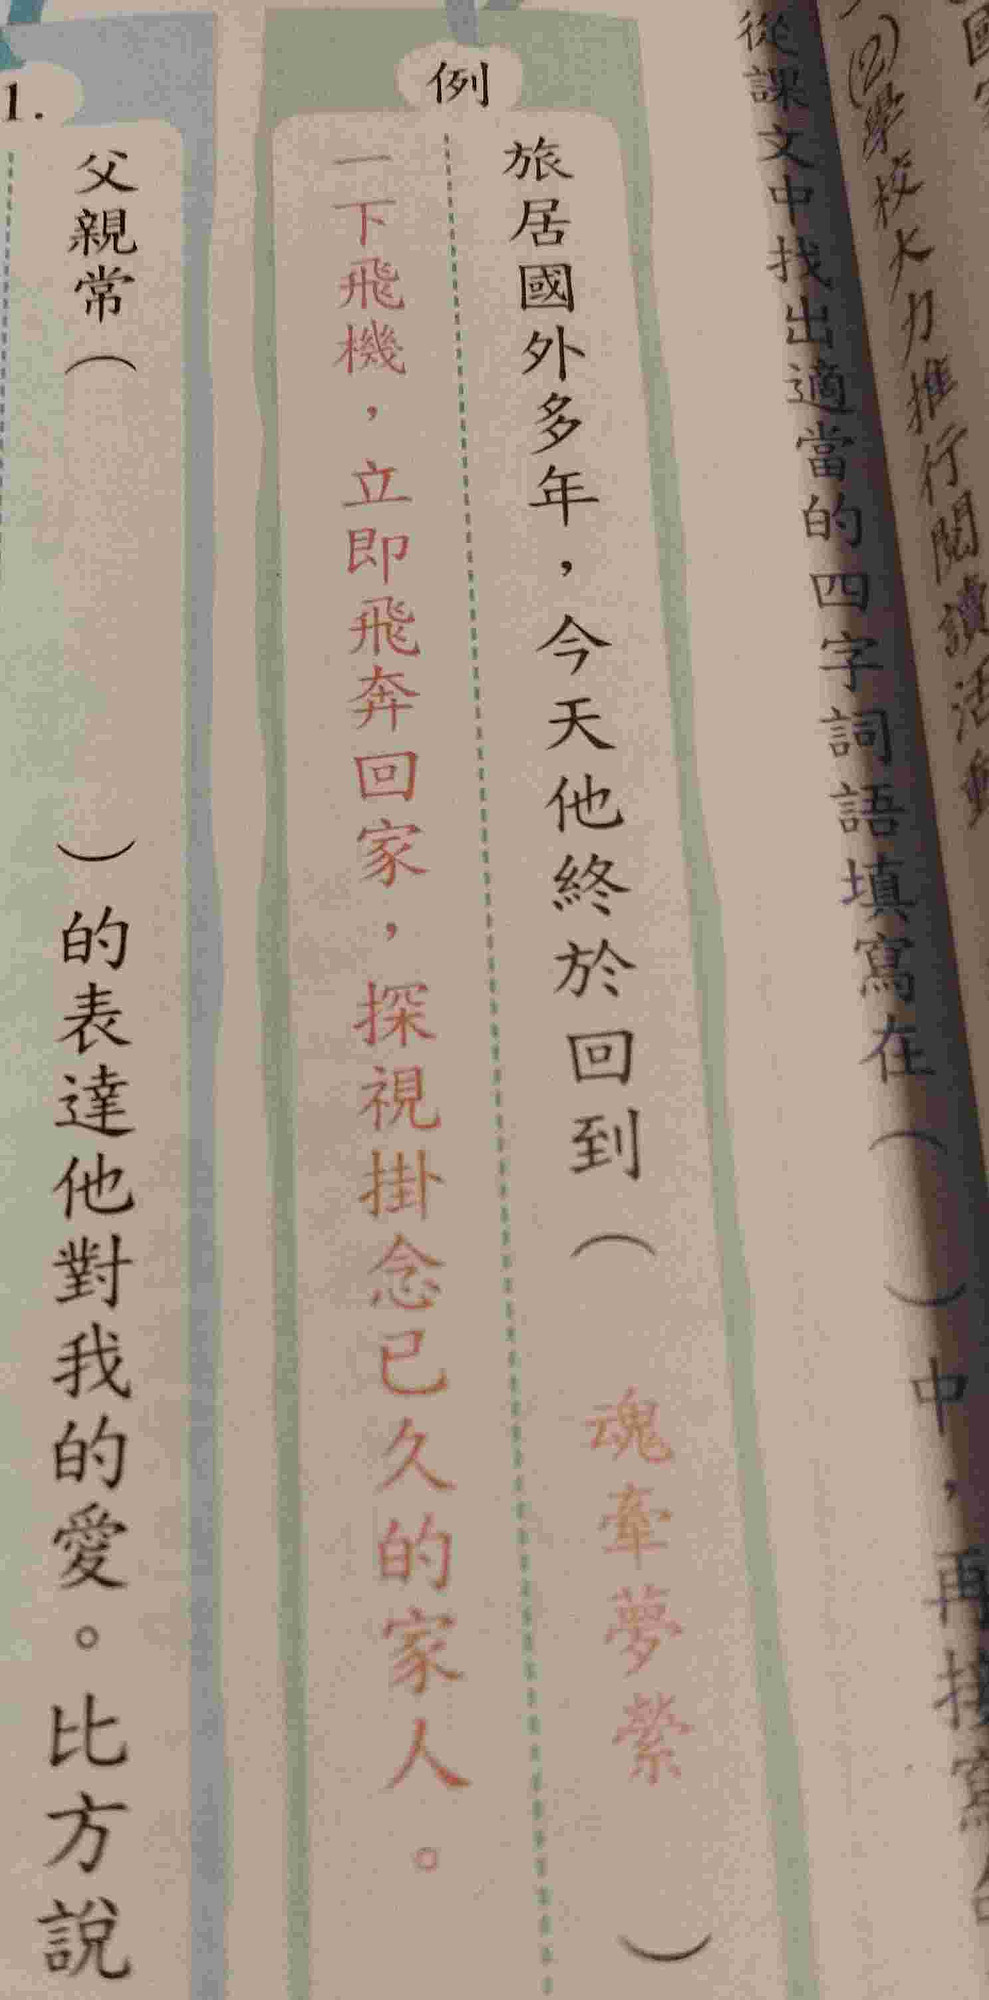 (2)學校大力推行閱讀活動
從課文中找出適當的四字詞語填寫在( )中，再接寫
例
旅居國外多年，今天他終於回到( 魂牽夢縈 )
一下飛機，立即飛奔回家，探視掛念已久的家人。
1.
父親常( )的表達他對我的愛。比方說